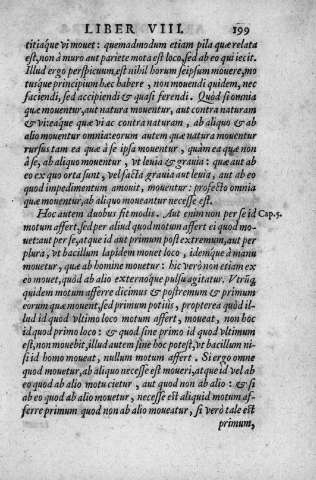 LIBER VIII. 199
titiáq́ue vi mouet: quemadmodum etiam pila quæ relata
est, non à muro aut pariete mota est loco, sed ab eo qui iecit.
Illud ergo perspicuum, est nihil horum seipsum mouere, mo
tusque principium hæc habere, non mouendi quidem, nec
faciendi, sed accipiendi & quasi ferendi. Quòd si omnia
quæ mouentur, aut natura mouentur, aut contra naturam
& vi: eaque quæ vi ac contra naturam, ab aliquo & ab
alio mouentur omnia: eorum autem quæ natura mouentur
rursus tam ea quæ à se ipsa mouentur, quàm ea quæ non
à se, ab aliquo mouentur, vt leuia & grauia: quæ aut ab
eo ex quo orta sunt, vel facta grauia aut leuia, aut ab eo
quod impedimentum amouit, mouentur: profecto omnia
quæ mouentur, ab aliquo moueantur necesse est.
Hoc autem duobus fit modis. Aut enim non per se id Cap. 5.
motum affert, sed per aliud quod motum affert ei quod mo-
uet: aut per se, atque id aut primum post extremum, aut per
plura, vt bacillum lapidem mouet loco, idemq́ue à manu
mouetur, quæ ab homine mouetur: hic verò non etiam ex
eo mouet, quòd ab alio externóque pulsu agitatur. Vtrũq́
quidem motum afferre dicimus & postremum & primum
eorum quæ mouent, sed primum potiùs, propterea quòd il-
lud id quod vltimo loco motum affert, moueat, non hoc
id quod primo loco: & quod sine primo id quod vltimum
est, non mouebit, illud autem sine hoc potest, vt bacillum ni-
si id homo moueat, nullum motum affert. Si ergo omne
quod mouetur, ab aliquo necesse est moueri, atque id vel ab
eo quod ab alio motu cietur, aut quod non ab alio: & si
ab eo quod ab alio mouetur, necesse est aliquid motum af-
ferre primum quod non ab alio moueatur, si verò tale est
primum,